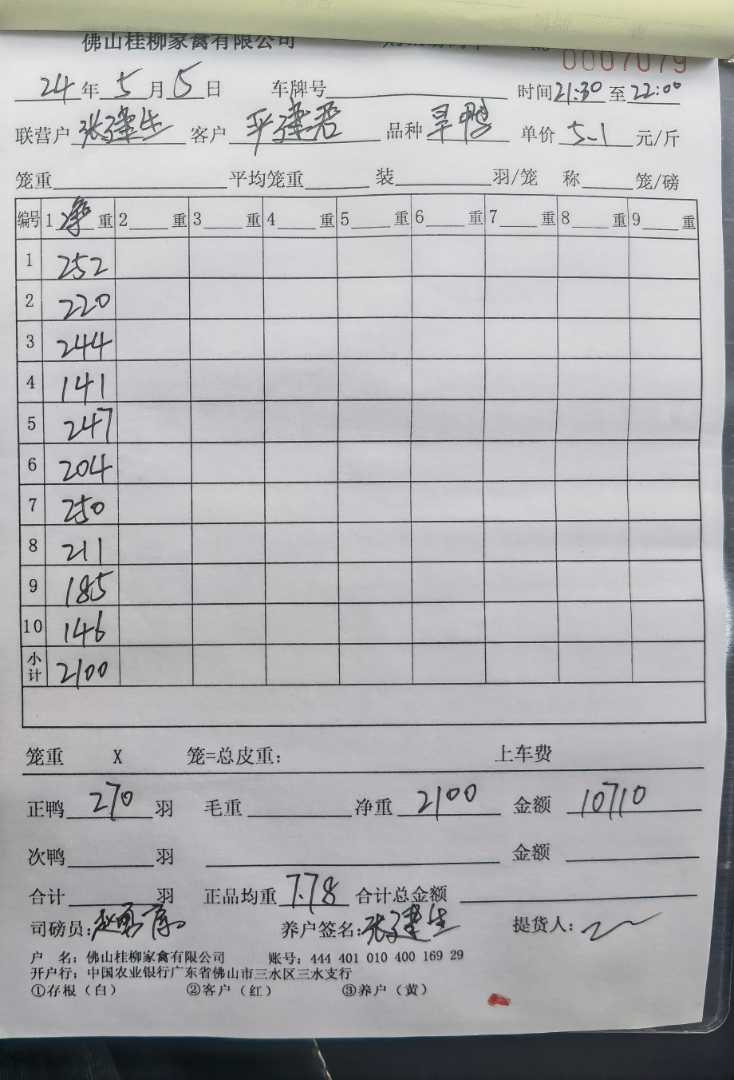 佛山桂柳家禽有限公司
0007079
24年5月5日 车牌号 时间21:30至22:00
联营户 张建生 客户 平建君 品种 旱鸭 单价 5.1 元/斤
笼重 平均笼重 装 羽/笼 称 笼/磅
编号 1 净 重 2 重 3 重 4 重 5 重 6 重 7 重 8 重 9 重
1 252
2 220
3 244
4 141
5 247
6 204
7 250
8 211
9 185
10 146
小计 2100
笼重 X 笼=总皮重: 上车费
正鸭 270 羽 毛重 净重 2100 金额 10710
次鸭 羽 金额
合计 羽 正品均重 7.78 合计总金额
司磅员: 养户签名: 张建生 提货人:
户 名: 佛山桂柳家禽有限公司 账号: 444 401 010 400 169 29
开户行: 中国农业银行广东省佛山市三水区三水支行
①存根(白) ②客户(红) ③养户(黄)